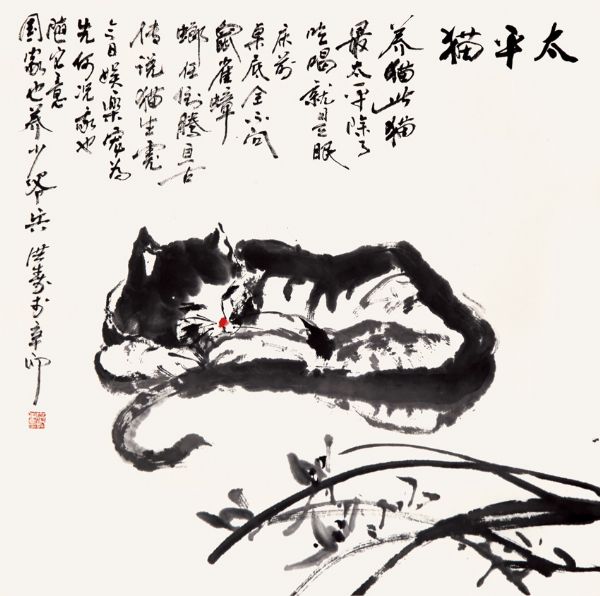 太平猫
养猫此猫
最太平除了
吃喝就是眠
床前
桌底全不问
鼠雀蟑
螂任倒腾自古
传说猫生
今日娱乐为
先何况也
随它意
国家也养少爷兵 洪寿于辛卯